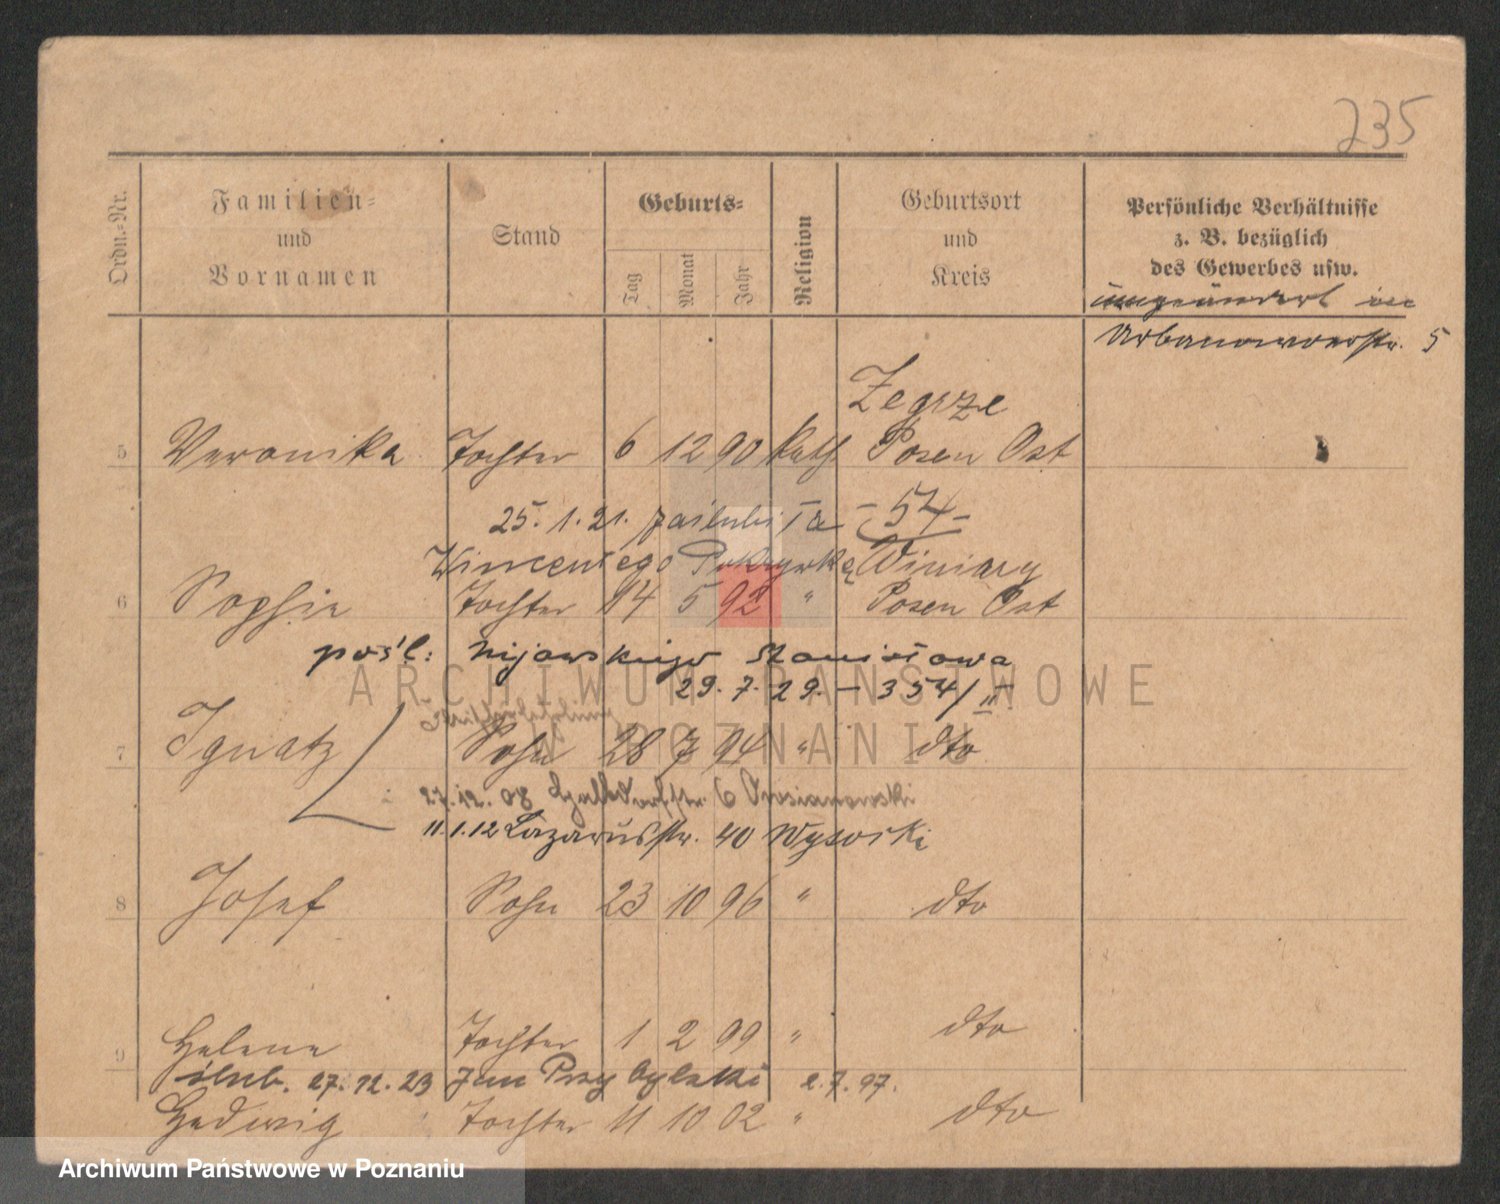 235
Ordn.-Nr.
Familien- und Vornamen
Stand
Geburts-
Tag Monat Jahr
Religion
Geburtsort und Kreis
Persönliche Verhältnisse
z. B. bezüglich
des Gewerbes usw.
5
Zegrze
5 Veronika Tochter 6 12 90 kath Posen Ost
25. 1. 21. zaślubiła - 54 -
Wincentego Winiary
6 Sophie Tochter 14 5 92 " Posen Ost
pośl: Nijowskiego Stanisława
29. 7. 29. - 354/II
7 Ignatz Sohn 28 7 94 " dto
27. 12. 08
11.1.12 Lazarusstr. 40 Wysocki
8 Josef Sohn 23 10 96 " dto
9 Helene Tochter 1 2 99 " dto
ślub. 27. 12. 23 Jan Przybylski 2. 7. 97.
Hedwig Tochter 11 10 02 " dto
ARCHIWUM PAŃSTWOWE
W POZNANIU
Archiwum Państwowe w Poznaniu